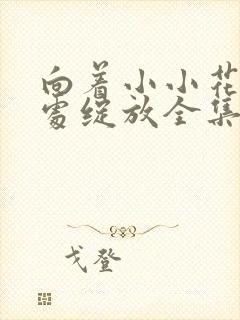 向着小小花
蕾绽放全集
戈登